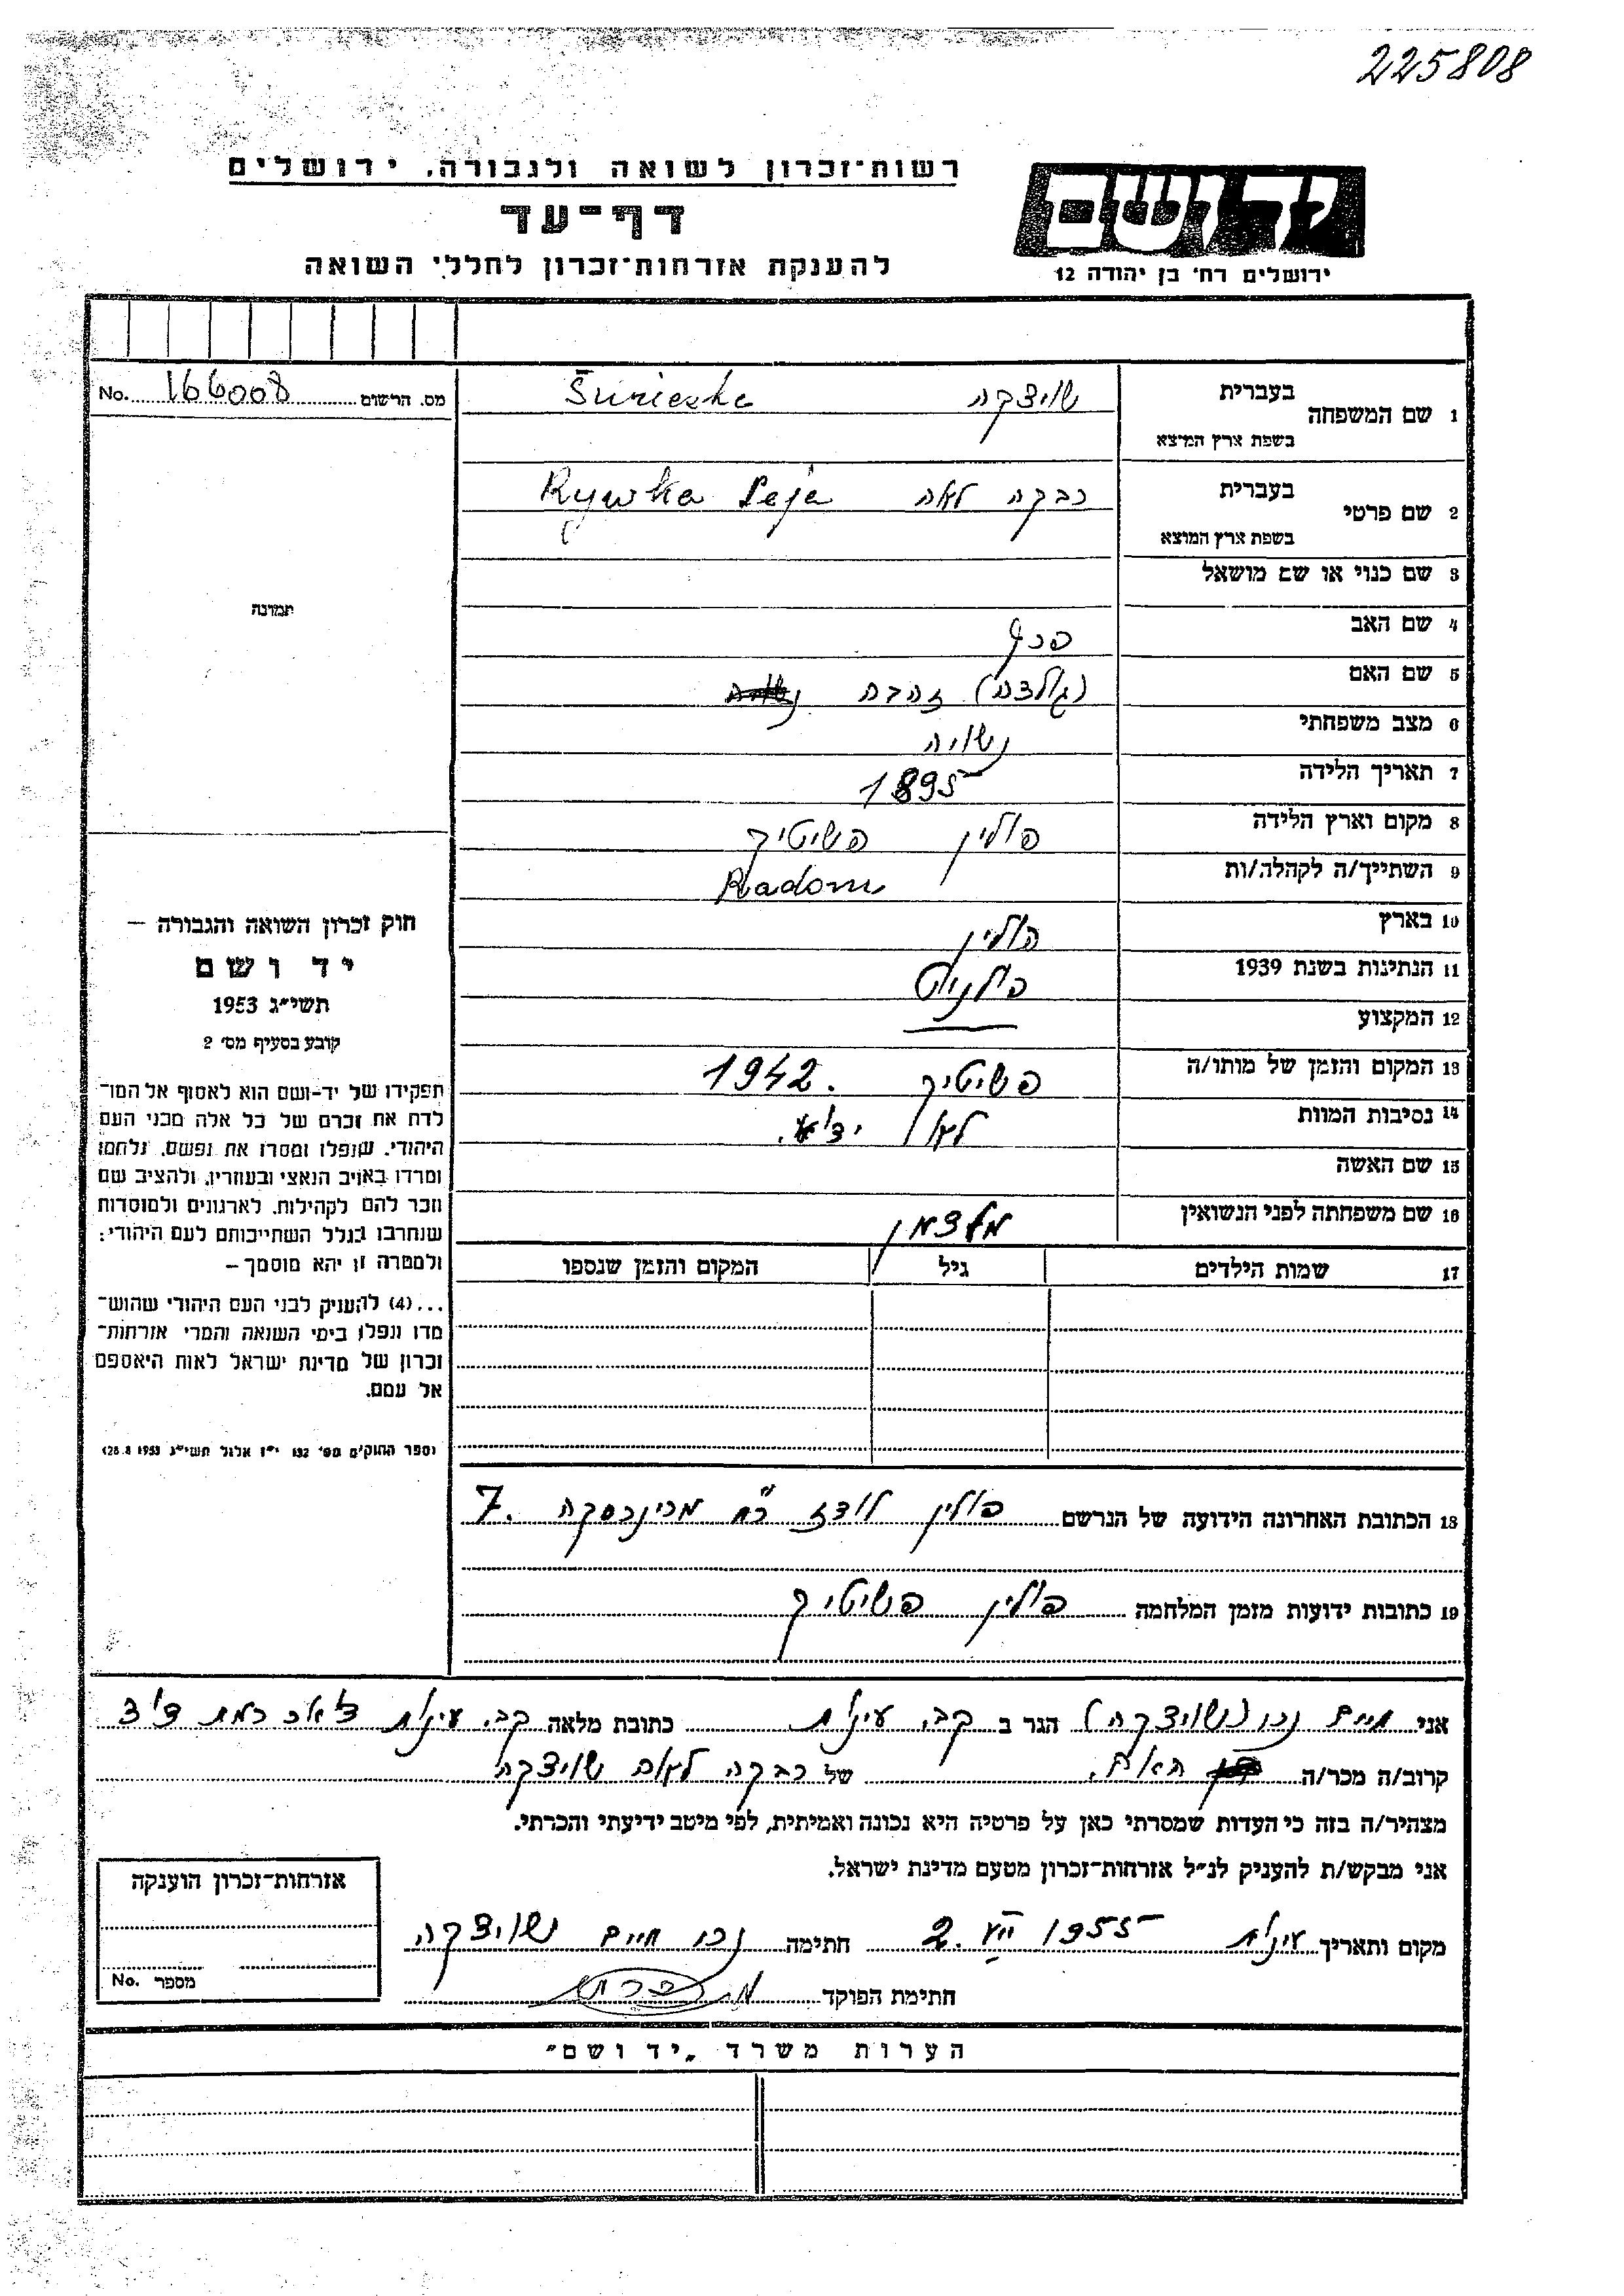 225808
רשות־זכרון לשואה ולגבורה, ירושלים
דף־עד
להענקת אזרחות־זכרון לחללי השואה
ידושם
ירושלים רח׳ בן יהודה 12
מס. הרשום 166008 No.
1 שם המשפחה בעברית שויצקה
בשפת ארץ המוצא
2 שם פרטי בעברית רבקה לאה Rywka Leja
בשפת ארץ המוצא
3 שם כנוי או שם מושאל
4 שם האב
5 שם האם (גולדה) זהבה
6 מצב משפחתי נשואה
7 תאריך הלידה 1895
8 מקום וארץ הלידה פולין פשיטיק
9 השתייך/ה לקהלה/ות Radom
10 בארץ פולין
11 הנתינות בשנת 1939 פולנית
12 המקצוע —
13 המקום והזמן של מותו/ה פשיטיק 1942.
14 נסיבות המוות לא ידוע.
15 שם האשה
16 שם משפחתה לפני הנשואין
17 שמות הילדים גיל המקום והזמן שנספו
18 הכתובת האחרונה הידועה של הנרשם פולין לודז רח׳ 7.
19 כתובות ידועות מזמן המלחמה פולין פשיטיק
תמונה
חוק זכרון השואה והגבורה —
יד ושם
תשי״ג 1953
קובע בסעיף מס׳ 2
תפקידו של יד-ושם הוא לאסוף אל המו־
לדת את זכרם של כל אלה מבני העם
היהודי, שנפלו ומסרו את נפשם, נלחמו
ומרדו באויב הנאצי ובעוזריו, ולהציב שם
וזכר להם לקהילות, לארגונים ולמוסדות
שנחרבו בגלל השתייכותם לעם היהודי;
ולמטרה זו יהא מוסמך —
...(4) להעניק לבני העם היהודי שהוש־
מדו ונפלו בימי השואה והמרי אזרחות־
זכרון של מדינת ישראל לאות היאספם
אל עמם.
(ספר החוקים מס׳ 132 י״ז אלול תשי״ג 28.8.1953)
אני חיים (שויצקה) הגר ב קב. עינת כתובת מלאה קב. עינת דאר רמת
קרוב/ה מכר/ה האם. של רבקה לאה שויצקה
מצהיר/ה בזה כי העדות שמסרתי כאן על פרטיה היא נכונה ואמיתית, לפי מיטב ידיעתי והכרתי.
אני מבקש/ת להעניק לנ״ל אזרחות־זכרון מטעם מדינת ישראל.
מקום ותאריך עינת 1955 2. חתימה חיים שויצקה
חתימת הפוקד
אזרחות־זכרון הוענקה
מספר No.
הערות משרד „יד ושם״